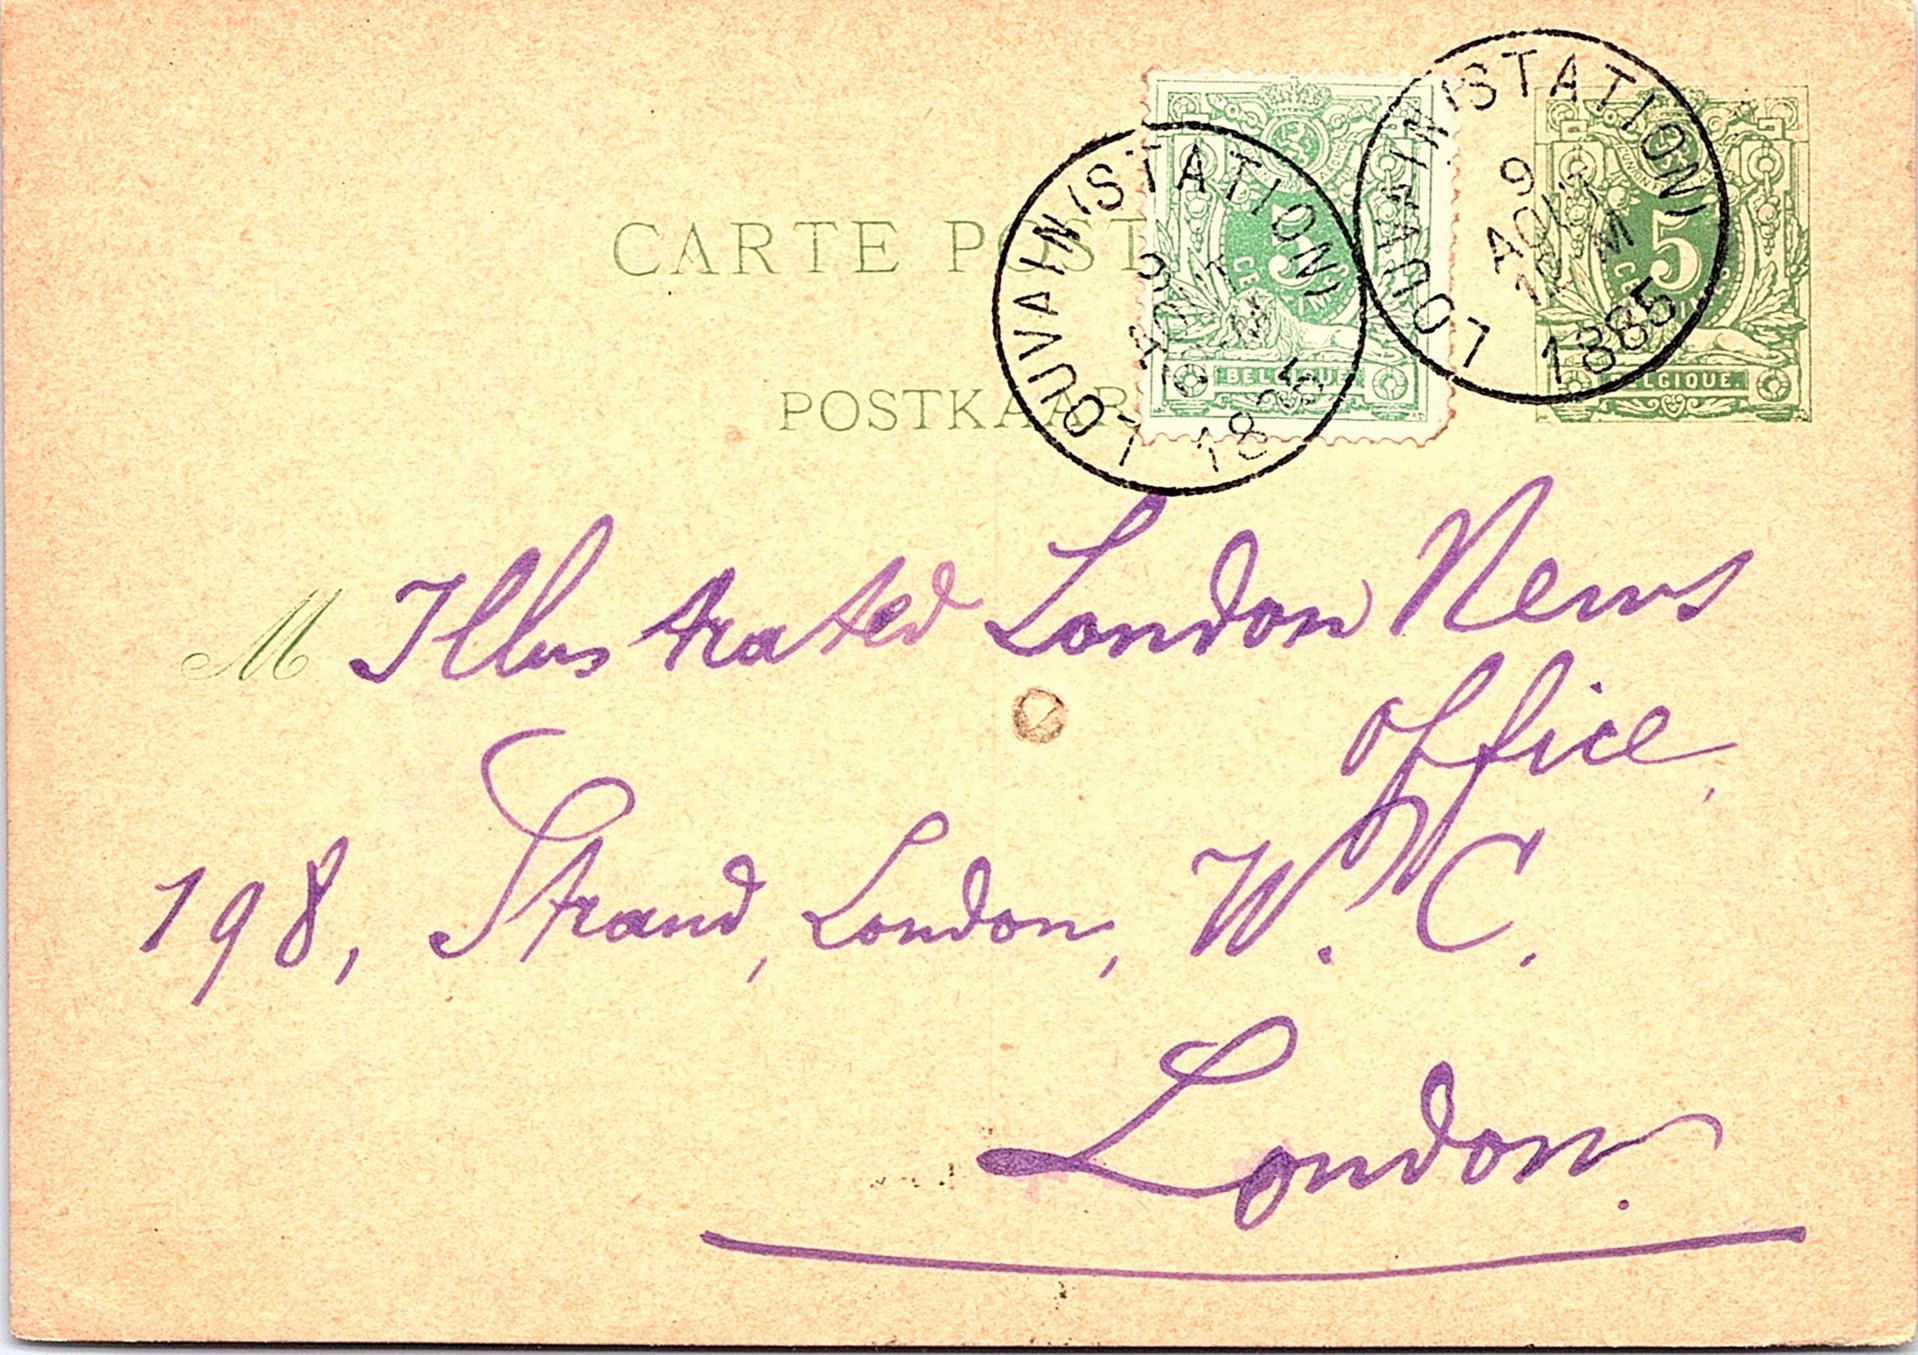 CARTE POST
POSTKAAR
LOUVAIN (STATION)
AOUT
1885
5
BELGIQUE
LOUVAIN (STATION)
9
AOUT
12 M
1885
5
BELGIQUE.
M Illustrated London News
Office,
198, Strand, London, W. C.
London.